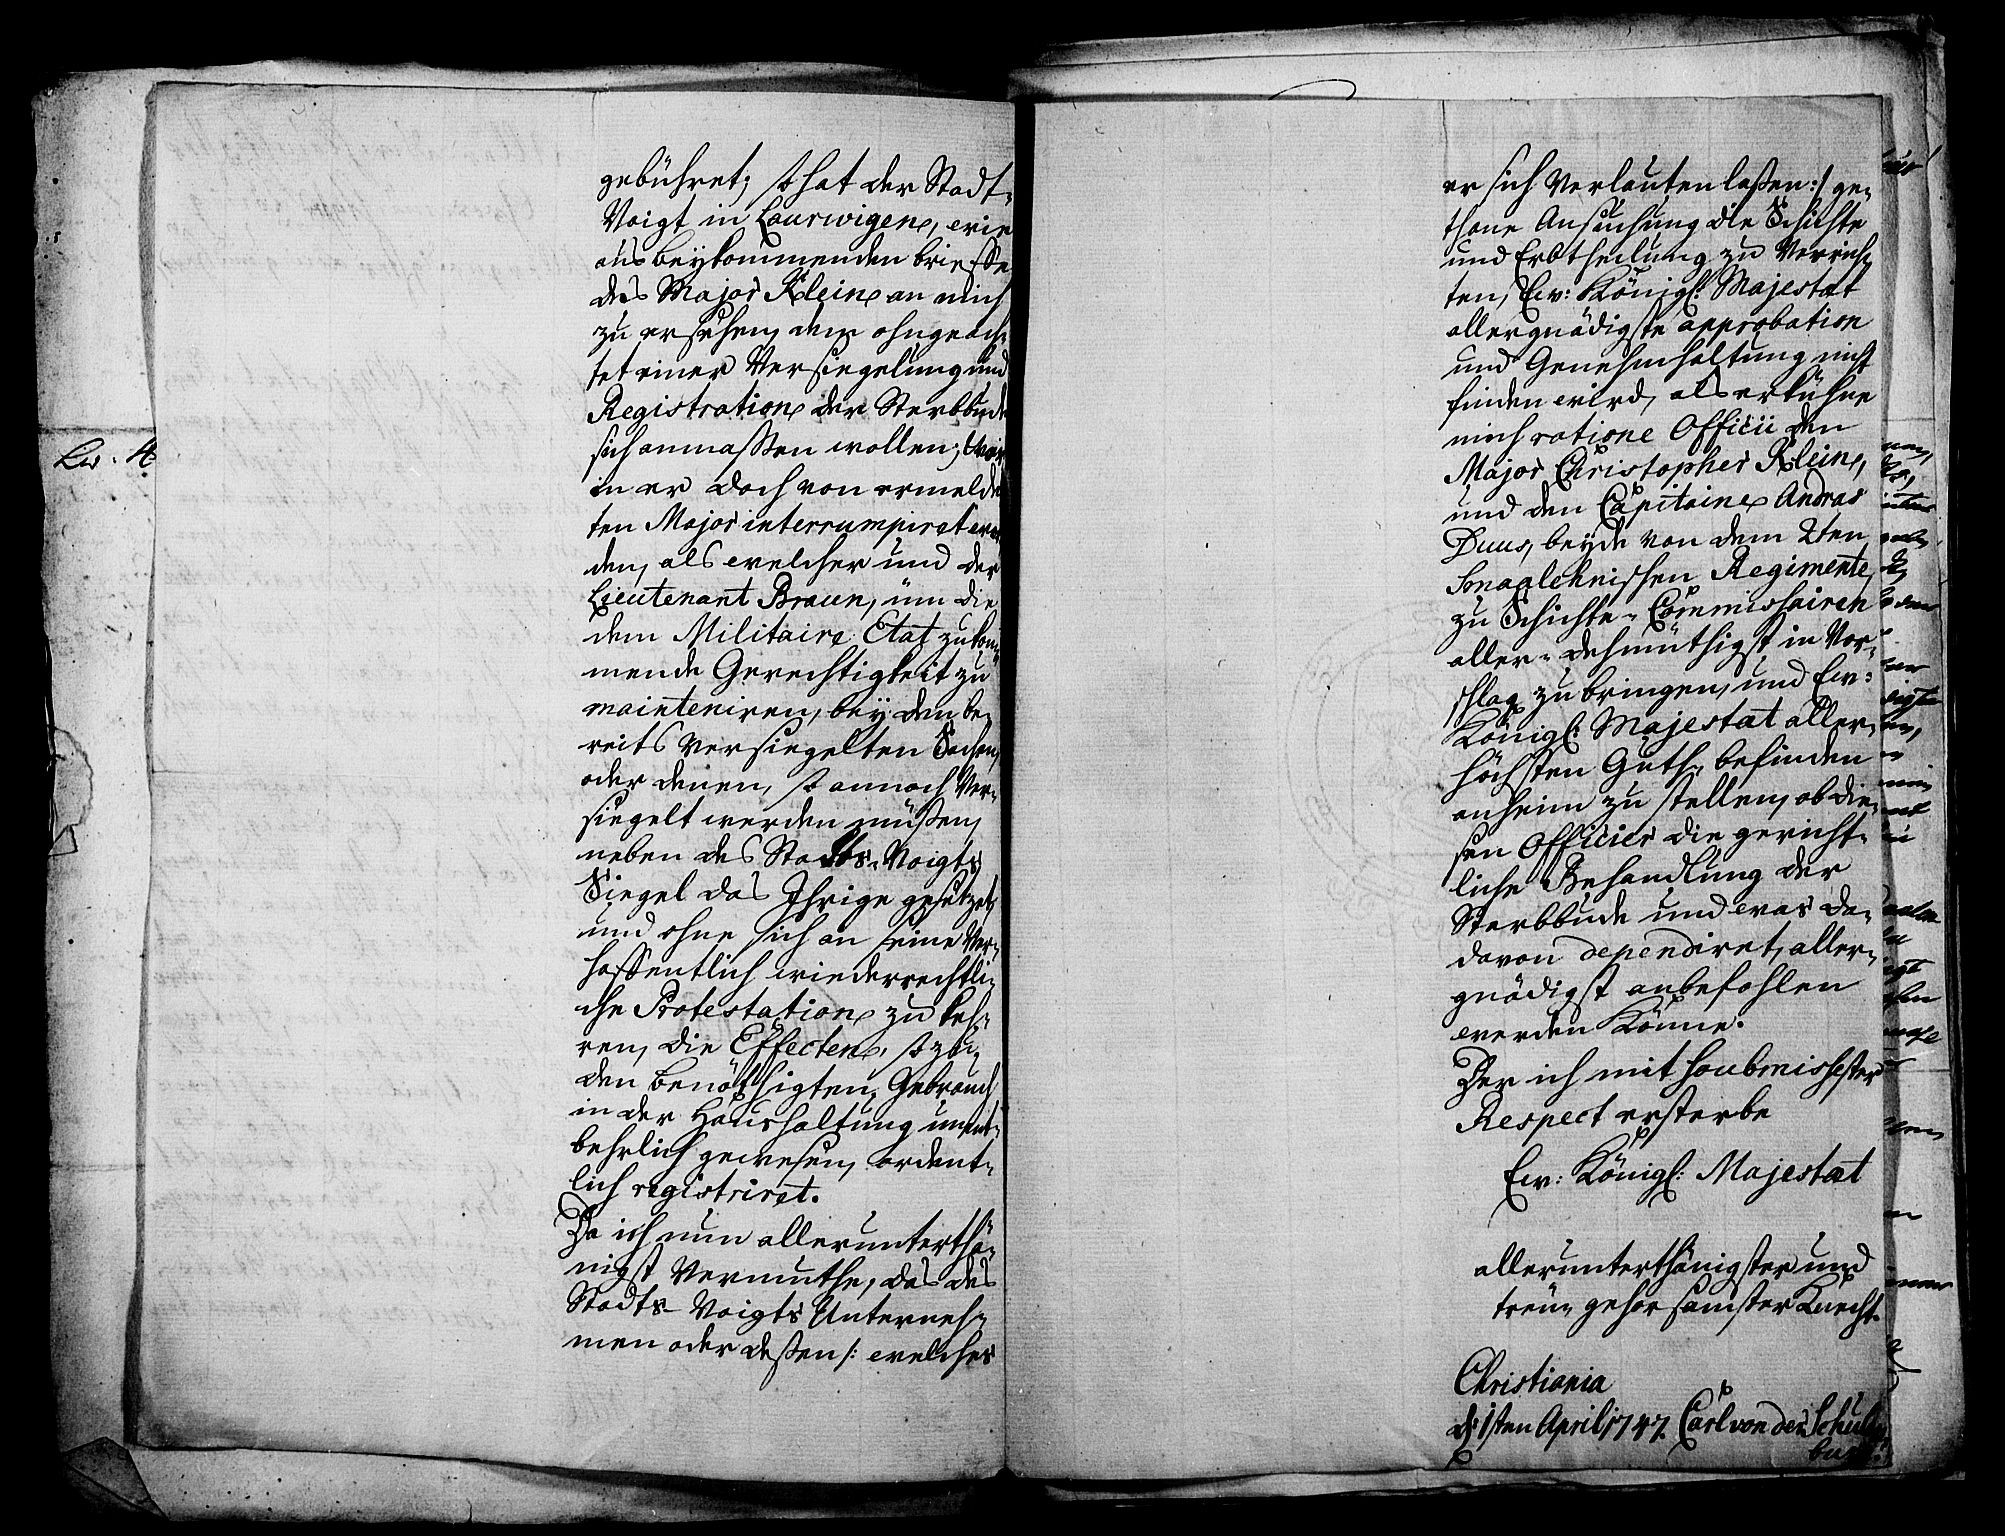 Lit. A.
gebühret; so hat der Stadt-
Voigt in Laurwigen, wie
aus beykommenden brieffe
des Major Klein an mich
zu ersehen, dem ohngeach-
tet einer Versiegelung und
Registration der Sterbbude
sich anmassen wollen; wor-
in er doch von ermeld-
ten Major interrumpiret wor-
den, als welcher und der
Lieutenant Braun, üm die
dem Militaire Etat zukom-
mende Gerechtigkeit zu
mainteniren, bey den be-
reits versiegelten Sachen,
oder denen, so annoch Ver-
siegelt werden müßen,
neben des Stadts-Voigts
Siegel das Ihrige gesetzet,
und ohne sich an seine Ver-
hoffentlich wiederrechtli-
che Protestation zu keh-
ren, die Effecten, so zu
den benöthigten Gebrauch
in der Haushaltung unent-
behrlich gewesen, ordent-
lich registriret.
Da ich nun allerunterthä-
nigst Vermuthe, das des
Stadts-Voigts Unterneh-
men oder deßen /: welcher
er sich Verlauten laßen :/ ge-
thane Ansuchung die Schichte
und Erbtheilung zu Verrich-
ten, Ew: Königl: Majestæt
allergnädigste approbation
und Genehmhaltung nicht
finden wird, als erkühne
mich ratione Officii den
Major Christopher Klein,
und den Capitaine Andras
Duus, beyde von dem 2ten
Smaalehnischen Regimente,
zu Schichte-Commissairen
aller-dehmüthigst in Vor-
schlag zu bringen, und Ew:
Königl: Majestæt aller-
höchsten Guth-befinden
anheim zu stellen, ob die-
sen Officier die gericht-
liche Behandlung der
Sterbbude und was da-
davon dependiret, aller-
gnädigst anbefohlen
werden könne.
Der ich mit soubmissester
Respect ersterbe
Ew: Königl: Majestæt
allerunterthänigster und
treu-gehorsamster Knecht.
Christiania
d: 1sten April 1747. Carl von der Schulen
burg.